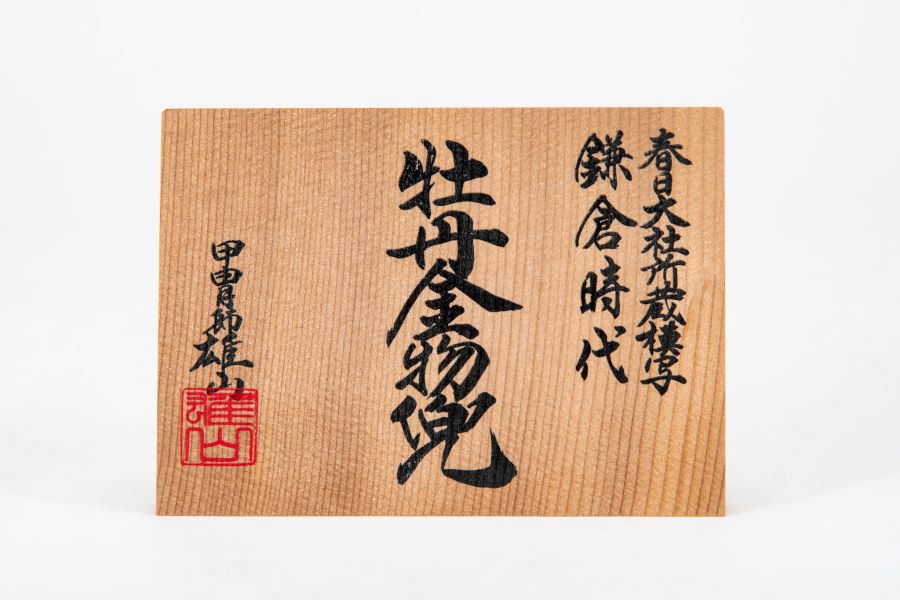 春日大社所蔵模写
鎌倉時代
牡丹金物兜
甲冑師雄山
雄山